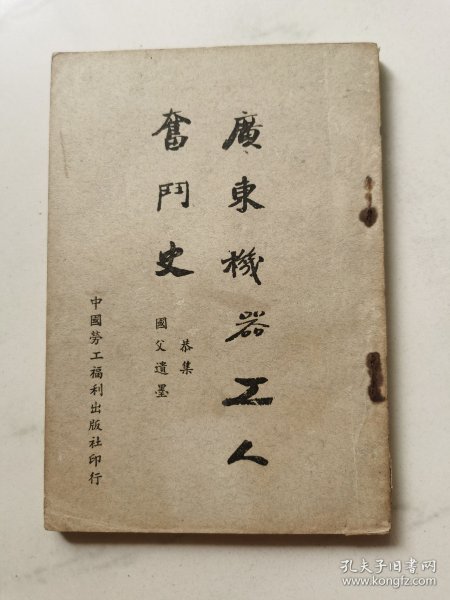 廣東機器工人
奮鬥史
恭集
國父遺墨
中國勞工福利出版社印行
孔夫子旧书网
www.kongfz.com